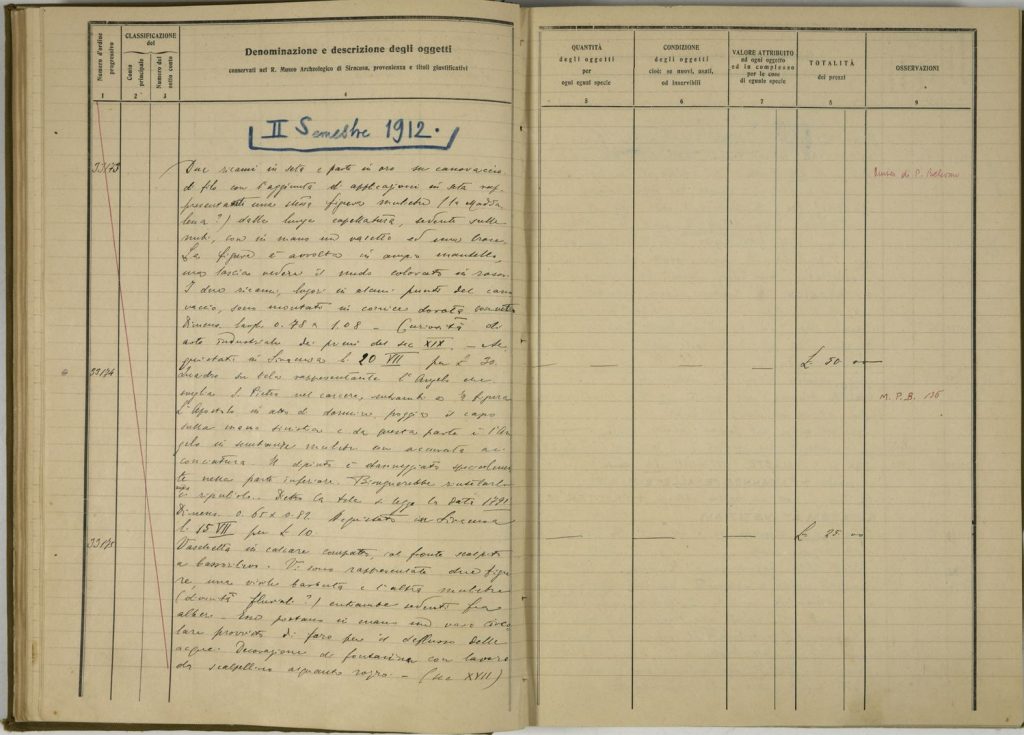 Numero d'ordine progressivo
CLASSIFICAZIONE del
Conto principale
Numero del sotto conto
Denominazione e descrizione degli oggetti
conservati nel R. Museo Archeologico di Siracusa, provenienza e titoli giustificativi
1 2 3 4
II Semestre 1912.
33173
Due ricami in seta e parte in oro su canovaccio
di filo con l'aggiunta di applicazioni in seta rap-
presentanti una stessa figura muliebre (la Madda-
lena?) dalla lunga capellatura, seduta sulle
nubi, con in mano un vasetto ed una croce.
La figura è avvolta in ampio mantello,
ma lascia vedere il nudo colorato in rosa.
I due ricami, logori in alcuni punti del cano
vaccio, sono montati in cornice dorata
Dimens. largh. 0.78 x 1.08 - Curiosità di
arte industriale dei primi del sec XIX. - Ac
quistati in Siracusa l. 20 VII per £ 30.
33174
Quadro su tela rappresentante l'Angelo che
sveglia S. Pietro nel carcere, entrambi a ½ figura
L'Apostolo in atto di dormire, poggia il capo
sulla mano sinistra e da questa parte è l'An
gelo in sembianze muliebri con accurata ac
conciatura. Il dipinto è danneggiato specialmen
te nella parte inferiore. Bisognerebbe rintelarlo
e ripulirlo. Dietro la tela si legge la data 1791
Dimens. 0.65 x 0.82. Acquistato in Siracusa
l. 15 VII per £ 10
33175
Vaschetta in calcare compatto, al fronte scolpita
a bassorilievo. Vi sono rappresentate due figu
re, una virile barbuta e l'altra muliebre
(divinità fluviali?) entrambe sedenti fra
alberi. Esse portano in mano un vaso circo
lare provvisto di foro per il deflusso delle
acque. Decorazione di fontanina con lavoro
di scalpellino alquanto rozzo. - (sec XVII)
QUANTITÀ degli oggetti per ogni eguai specie
CONDIZIONE degli oggetti cioè: se nuovi, usati, od inservibili
VALORE ATTRIBUITO ad ogni oggetto ed in complesso per le cose di eguale specie
TOTALITÀ dei prezzi
OSSERVAZIONI
5 6 7 8 9
Museo di P. Bellomo
£ 50 00
M. P. B. 136
£ 25 00